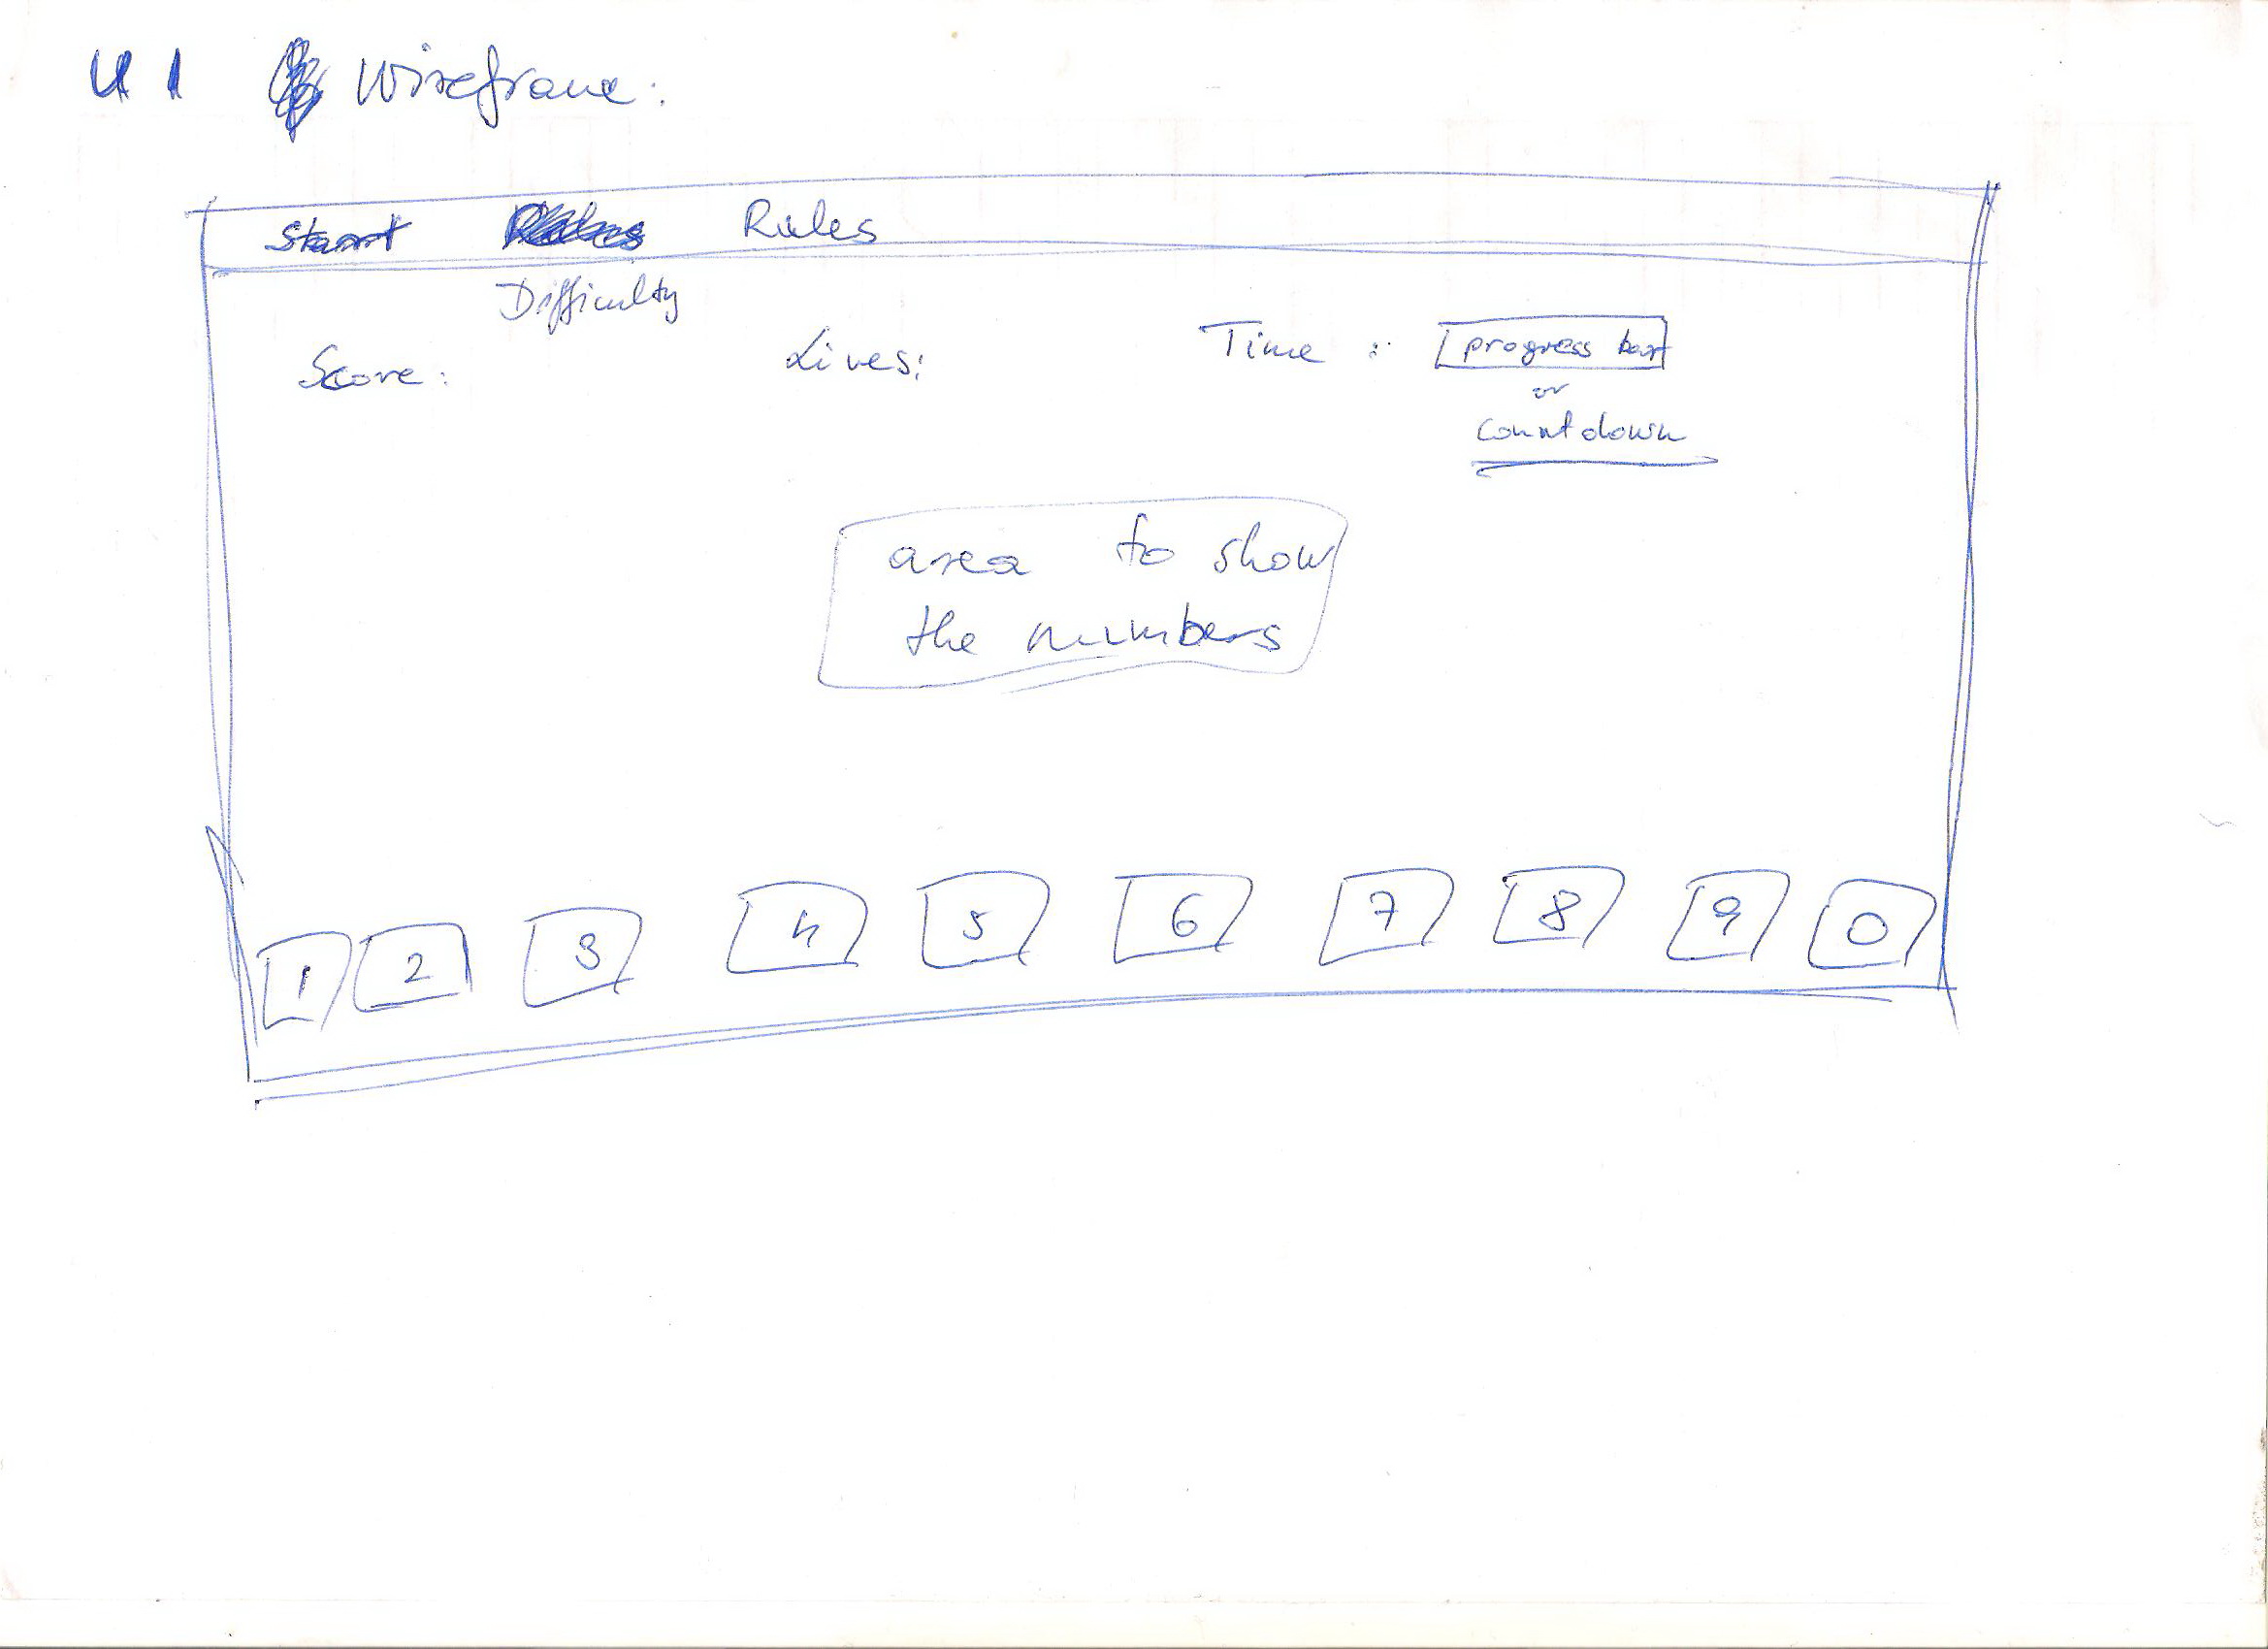 UI Wireframe:
Start Rules
Difficulty
Score: Lives: Time : progress bar
or
countdown
area to show
the numbers
1 2 3 4 5 6 7 8 9 0